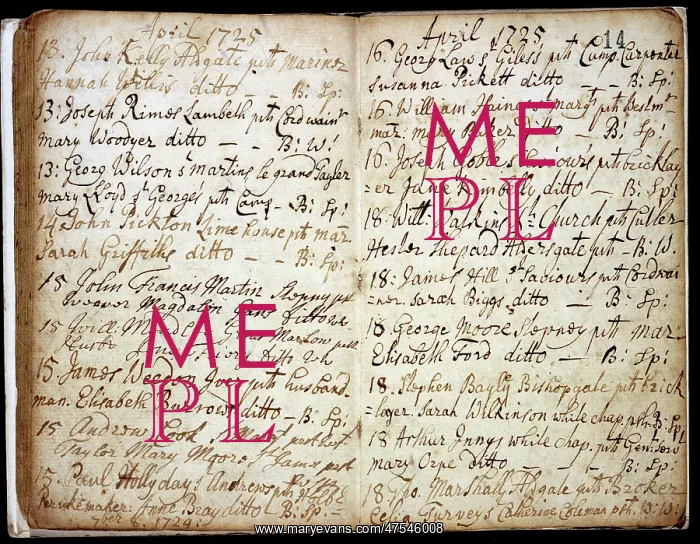 April 1725
13. John Kelly Algate pth Mariner
Hannah Willis ditto - - B: Sp:
13: Joseph Rimes Lambeth pth Cordwainr
mary Woodyer ditto - - B: W:
13: Georg Wilson s martins le grand Taylor
mary Loyd st Georges pth Camb - B: Sp:
14 John Pickton Limehouse pth mar
Sarah Griffiths ditto - - B: Sp:
15 John Francis Martin Stepny pt
Weaver Magdalin
15 Will:
15. James Weedon pth husband
man. Elisabeth Burrows ditto - B: Sp:
15 Andrew Cook
Taylor Mary Moore St James
15. Paul Hollyday s Andrews pth
Perukemaker: Anne Bray ditto B: Sp:
7ber 8 1724
April 1725
14
16. Georg Law s Giless pth Camp. Carpenter
susanna Pickett ditto - - B: Sp:
16. William Haines marg pth
mar: mary Baker ditto - B: Sp:
16. Joseph Noble s Saviours pth bricklay
=er Jane Kimbelly ditto - B: Sp:
18: Will: Church pth Cutler
Hester Shepard Aldersgate pth - B: W:
18: James Hill st Saviours pth Cordwai
=ner. sarah Biggs ditto - B: Sp:
18 George Moore Stepney pth mar
Elisabeth Ford ditto - B: Sp:
18. Stephen Bayly Bishopgate pth brick
=layer. Sarah Wilkinson white chap. pth B: Sp:
18 Arthur Innys white chap. pth
mary Orpe ditto - - B: Sp:
18 Tho. Marshall Algate pth Broker
Catherine Coleman pth. B: W:
ME
PL
ME
PL
www.maryevans.com/47546008